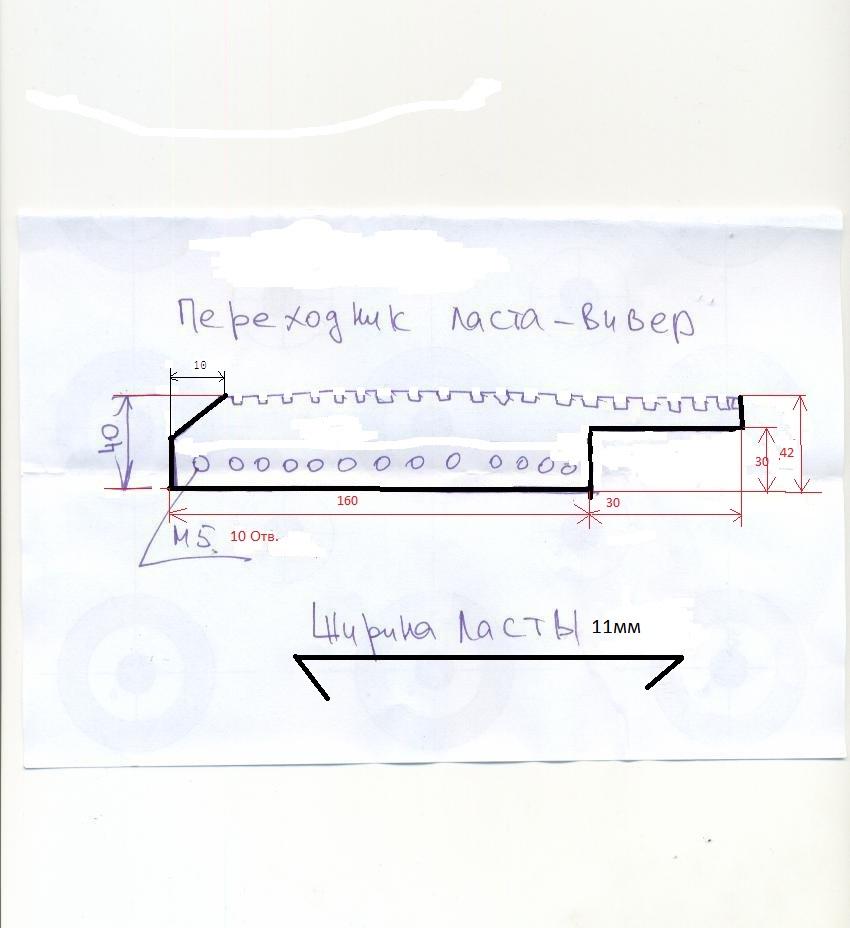 Переходник ласта-вивер
10
40
30
42
160
30
М5. 10 Отв.
Ширина Ласты 11мм